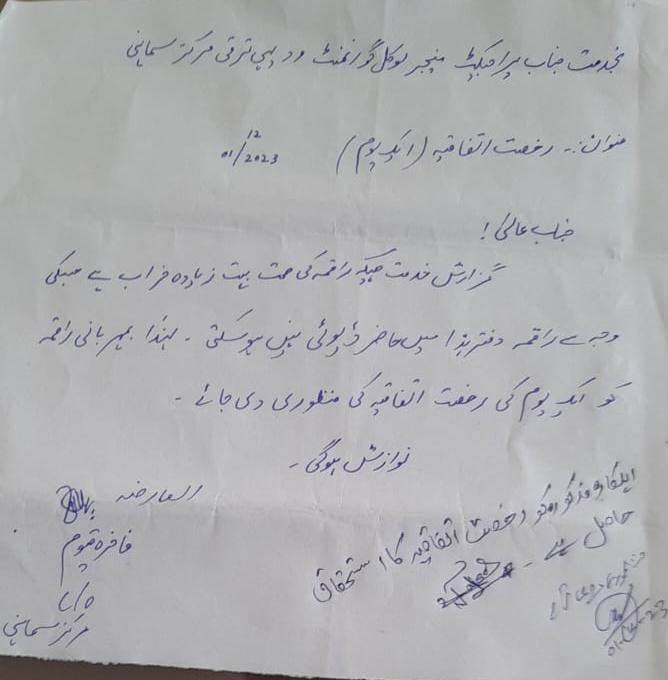 بخدمت جناب پراجیکٹ منیجر لوکل گورنمنٹ و دیہی ترقی مرکز سماہنی
عنوان:۔ رخصت اتفاقیہ (ایک یوم) 01/12/2023
جناب عالی!
گزارش خدمت ہیکہ راقمہ کی صحت بہت زیادہ خراب ہے جسکی
وجہ سے راقمہ دفتر ہذا میں حاضر ڈیوٹی نہیں ہو سکتی ۔ لہذا بمہربانی راقمہ
کو ایک یوم کی رخصت اتفاقیہ کی منظوری دی جائے ۔
نوازش ہوگی ۔
العارضہ
قیوم
مرکز سماہنی
اہلکارہ مذکورہ کو رخصت اتفاقیہ کا استحقاق
حاصل ہے ۔
01-12-23